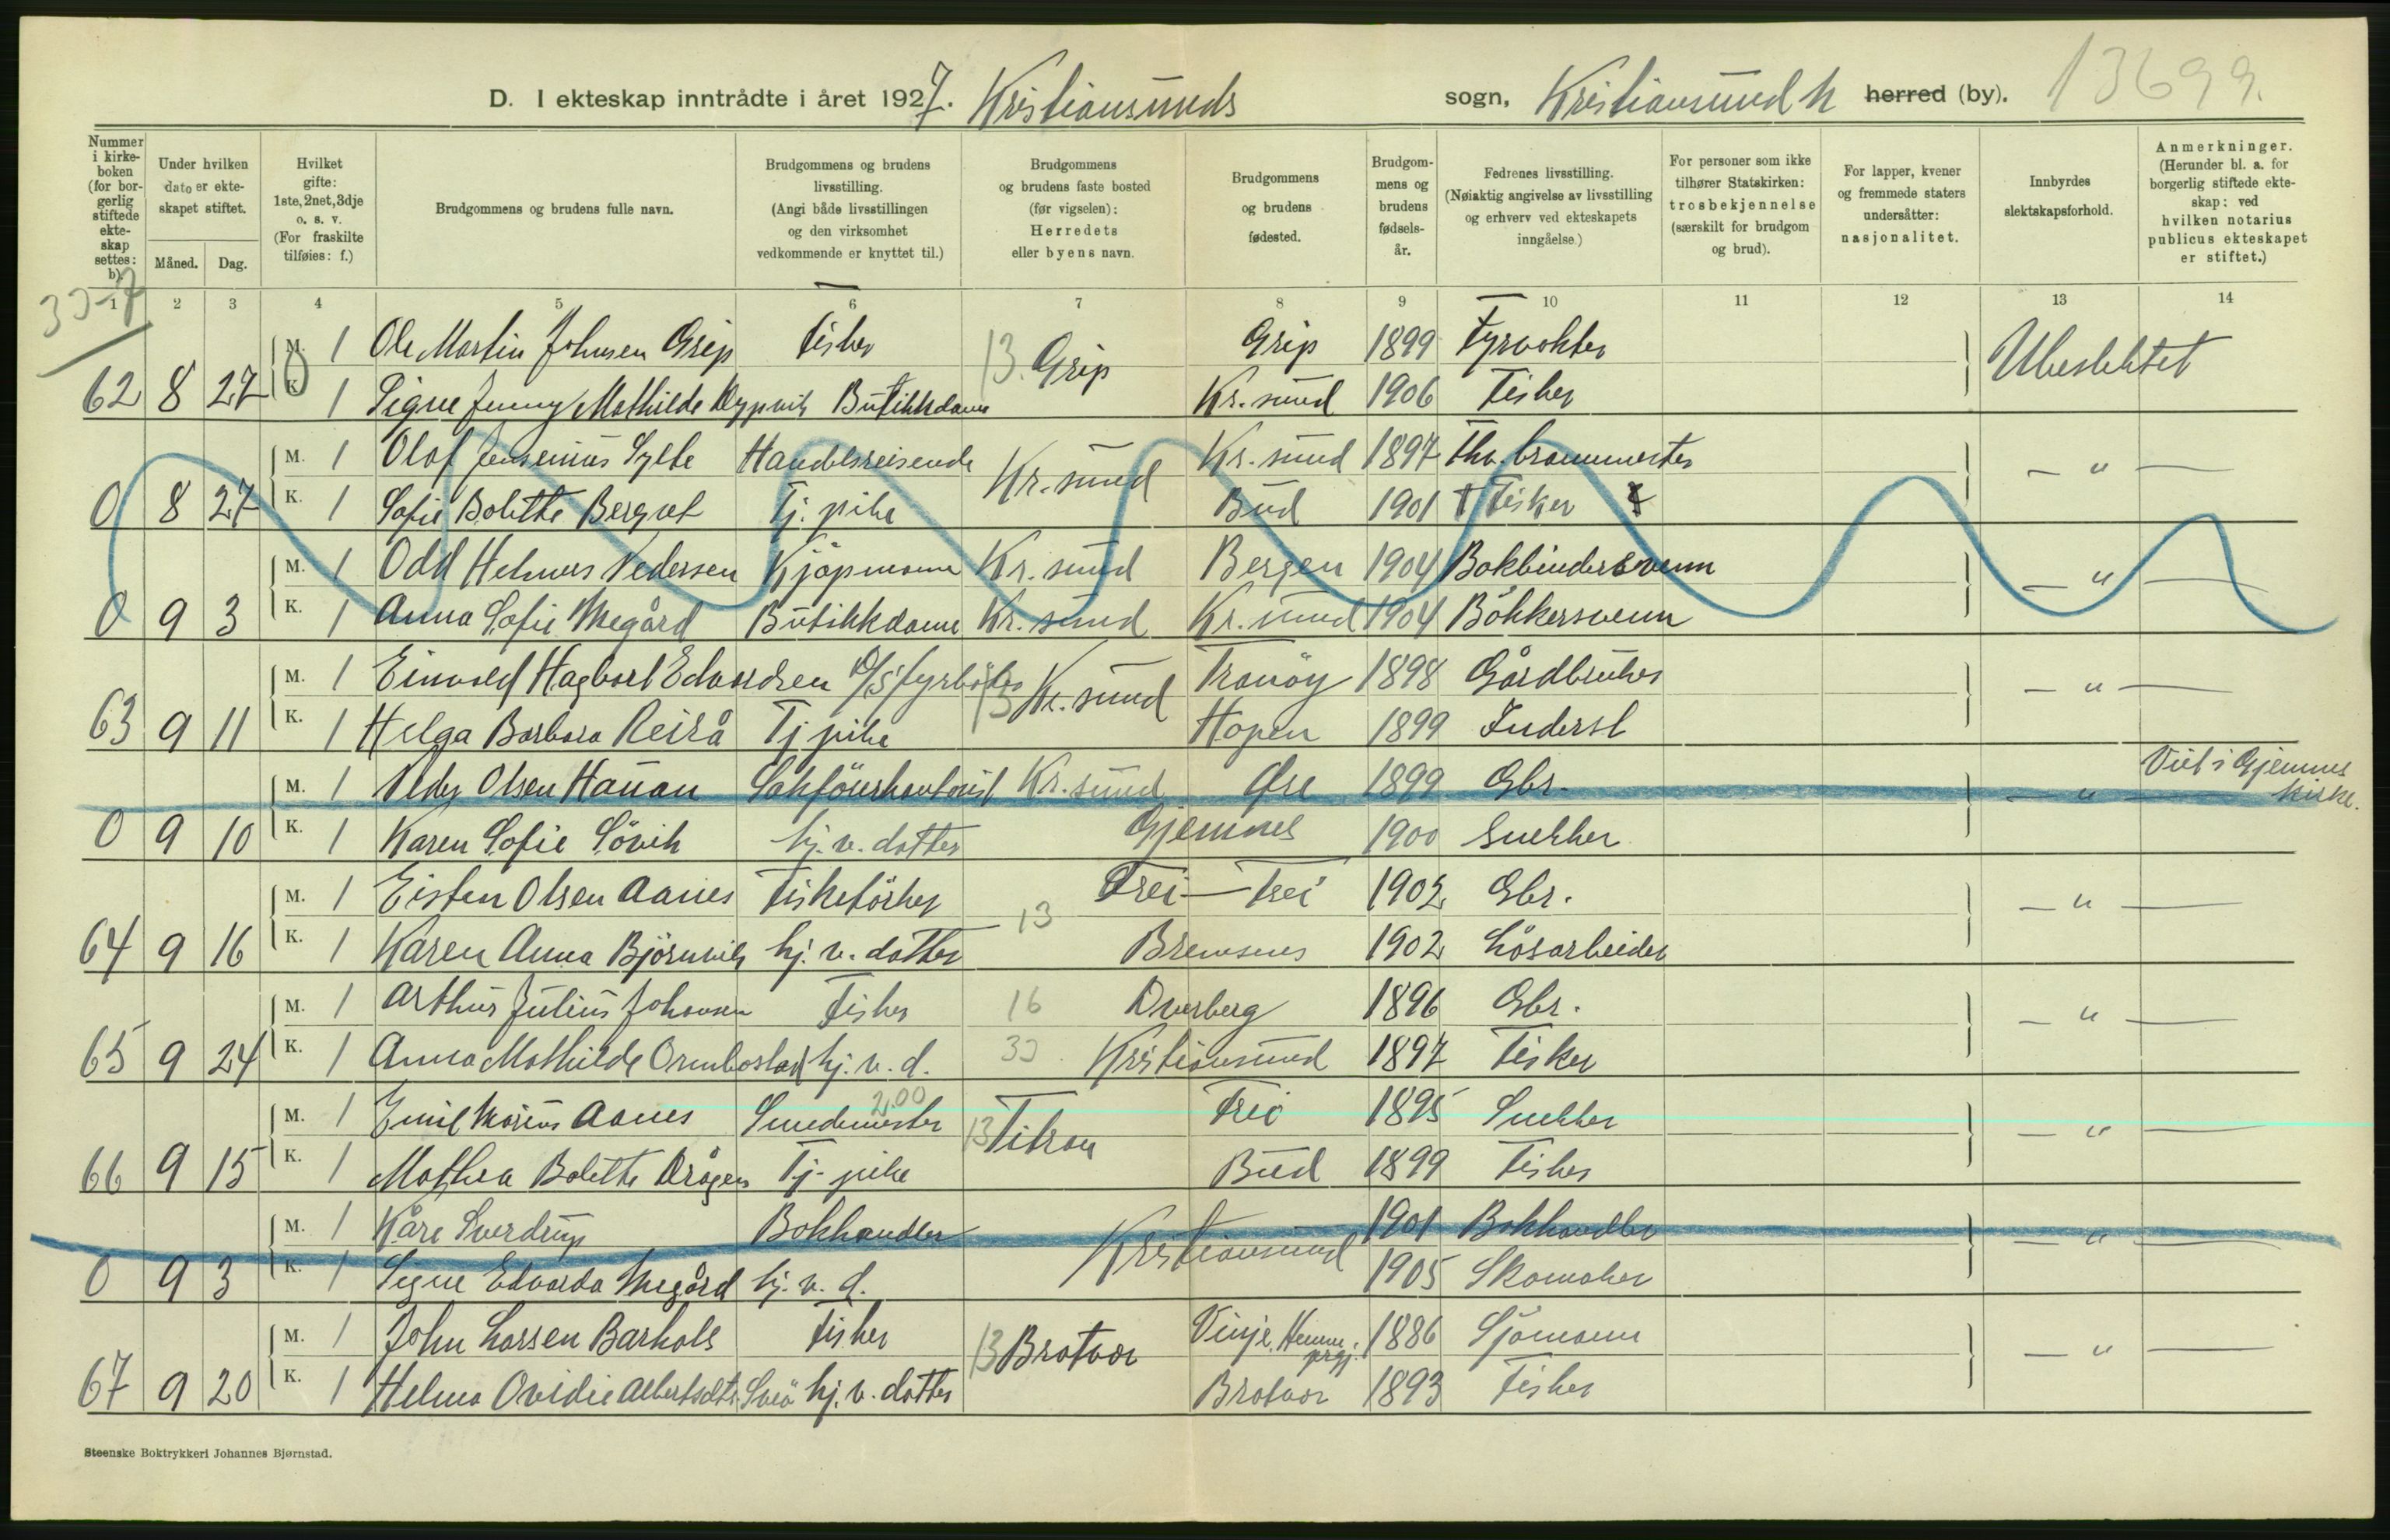 D. I ekteskap inntrådte i året 1927. Kristiansunds sogn, Kristiansund N herred (by). 13699.
Nummer i kirkeboken (for borgerlig stiftede ekteskap settes: b).
Under hvilken dato er ekteskapet stiftet.
Måned. Dag.
Hvilket gifte: 1ste, 2net, 3dje o. s. v. (For fraskilte tilføies: f.)
Brudgommens og brudens fulle navn.
Brudgommens og brudens livsstilling. (Angi både livsstillingen og den virksomhet vedkommende er knyttet til.)
Brudgommens og brudens faste bosted (før vigselen): Herredets eller byens navn.
Brudgommens og brudens fødested.
Brudgommens og brudens fødselsår.
Fedrenes livsstilling. (Nøiaktig angivelse av livsstilling og erhverv ved ekteskapets inngåelse.)
For personer som ikke tilhører Statskirken: trosbekjennelse (særskilt for brudgom og brud).
For lapper, kvener og fremmede staters undersåtter: nasjonalitet.
Innbyrdes slektskapsforhold.
Anmerkninger. (Herunder bl. a. for borgerlig stiftede ekteskap: ved hvilken notarius publicus ekteskapet er stiftet.)
1 2 3 4 5 6 7 8 9 10 11 12 13 14
M. 1 Ole Martin Johnsen Grip Fisker 13. Grip Grip 1899 Fyrvokter Ubeslektet
62 8 27 K. 1 Signe Jenny Mathilde Butikkdame Kr.sund 1906 Fisker
M. 1 Olaf Jensenius Sylte Handelsreisende Kr.sund Kr.sund 1897 Fhv. brannmester — " —
0 8 27 K. 1 Sofie Bolette Bergset Tj. pike Bud 1901 † Fisker
M. 1 Odd Helmers Pedersen Kjöpmann Kr.sund Bergen 1904 Bokbindersvenn — " —
0 9 3 K. 1 Anna Sofie Megård Butikkdame Kr.sund Kr.sund 1904 Bökkersvenn
M. 1 Hagbart Edvardsen D/S fyrböter 13 Kr.sund Tranöy 1898 Gårdbruker — " —
63 9 11 K. 1 Helga Barbara Reirå Tj pike Hopen 1899 Inderst
M. 1 Peder Olsen Hanan Kr.sund Øre 1899 Gbr. — " — Viet i Gjemnes kirke.
0 9 10 K. 1 Karen Sofie Sövik hj. v. datter Gjemnes 1900 Snekker
M. 1 Eisten Olsen Aanes Frei — Frei 1902 Gbr. — " —
64 9 16 K. 1 Karen Anna Björnvik hj. v. datter 13 Bremsnes 1902 Lösarbeider
M. 1 Arthur Julius Johansen Fisker 16 Overberg 1896 Gbr. — " —
65 9 24 K. 1 Anna Mathilde Ormbostad hj. v. d. 30. Kristiansund 1897 Fisker
M. 1 Emil Marius Aanes Smedmester 200 13 Titran Frei 1895 Snekker — " —
66 9 15 K. 1 Mathea Bolette Drågen Tj. pike Bud 1899 Fisker
M. 1 Kåre Sverdrup Bokhandler Kristiansund 1901 Bokhandler — " —
0 9 3 K. 1 Signe Edvarda Megård hj. v. d. 1905 Skomaker
M. 1 John Larsen Barhals Fisker 13 Brotvær Vinje, Hemne prgj. 1886 Sjömann — " —
67 9 20 K. 1 Helma Ovidie Albertsdtr. Sveö hj. v. datter Brotvær 1893 Fisker
Steenske Boktrykkeri Johannes Bjørnstad.